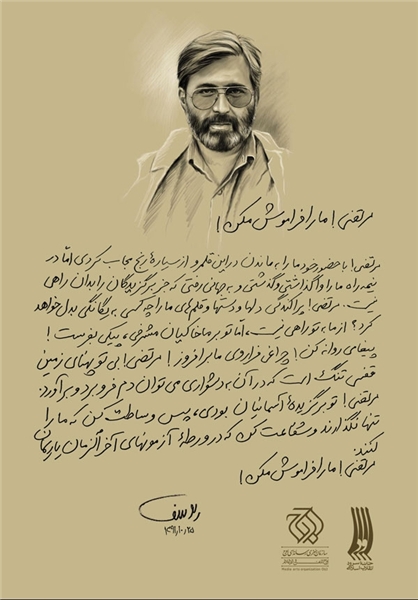 مرتضی! ما را فراموش مکن!
مرتضی! با حضور خود ما را به ماندن در این قلمرو از سیارهٔ رنج مجاب کردی امّا در
نیمه راه ما را واگذاشتی و گذشتی و به جهانی رفتی که جز برگزیدگان را بدان راهی
نیست. مرتضی! پراکندگی دلها و دستها و قلم‌های ما را چه کسی به یگانگی بدل خواهد
کرد؟ از ما به تو راهی نیست، اما تو بر ما خاکیان مشرفی، پیکی بفرست!
پیغامی روانه کن! چراغی فراروی ما برافروز! مرتضی! بی تو پهنای زمین
قفسی تنگ است که در آن به دشواری می توان دم فرو برد و برآورد.
مرتضی! تو برگزیدهٔ آسمانیان بودی، پس وساطت کن که ما را
تنها نگذارند و شفاعت کن که در ورطهٔ آزمونهای آخرالزمان یاریمان
کنند.
مرتضی! ما را فراموش مکن!